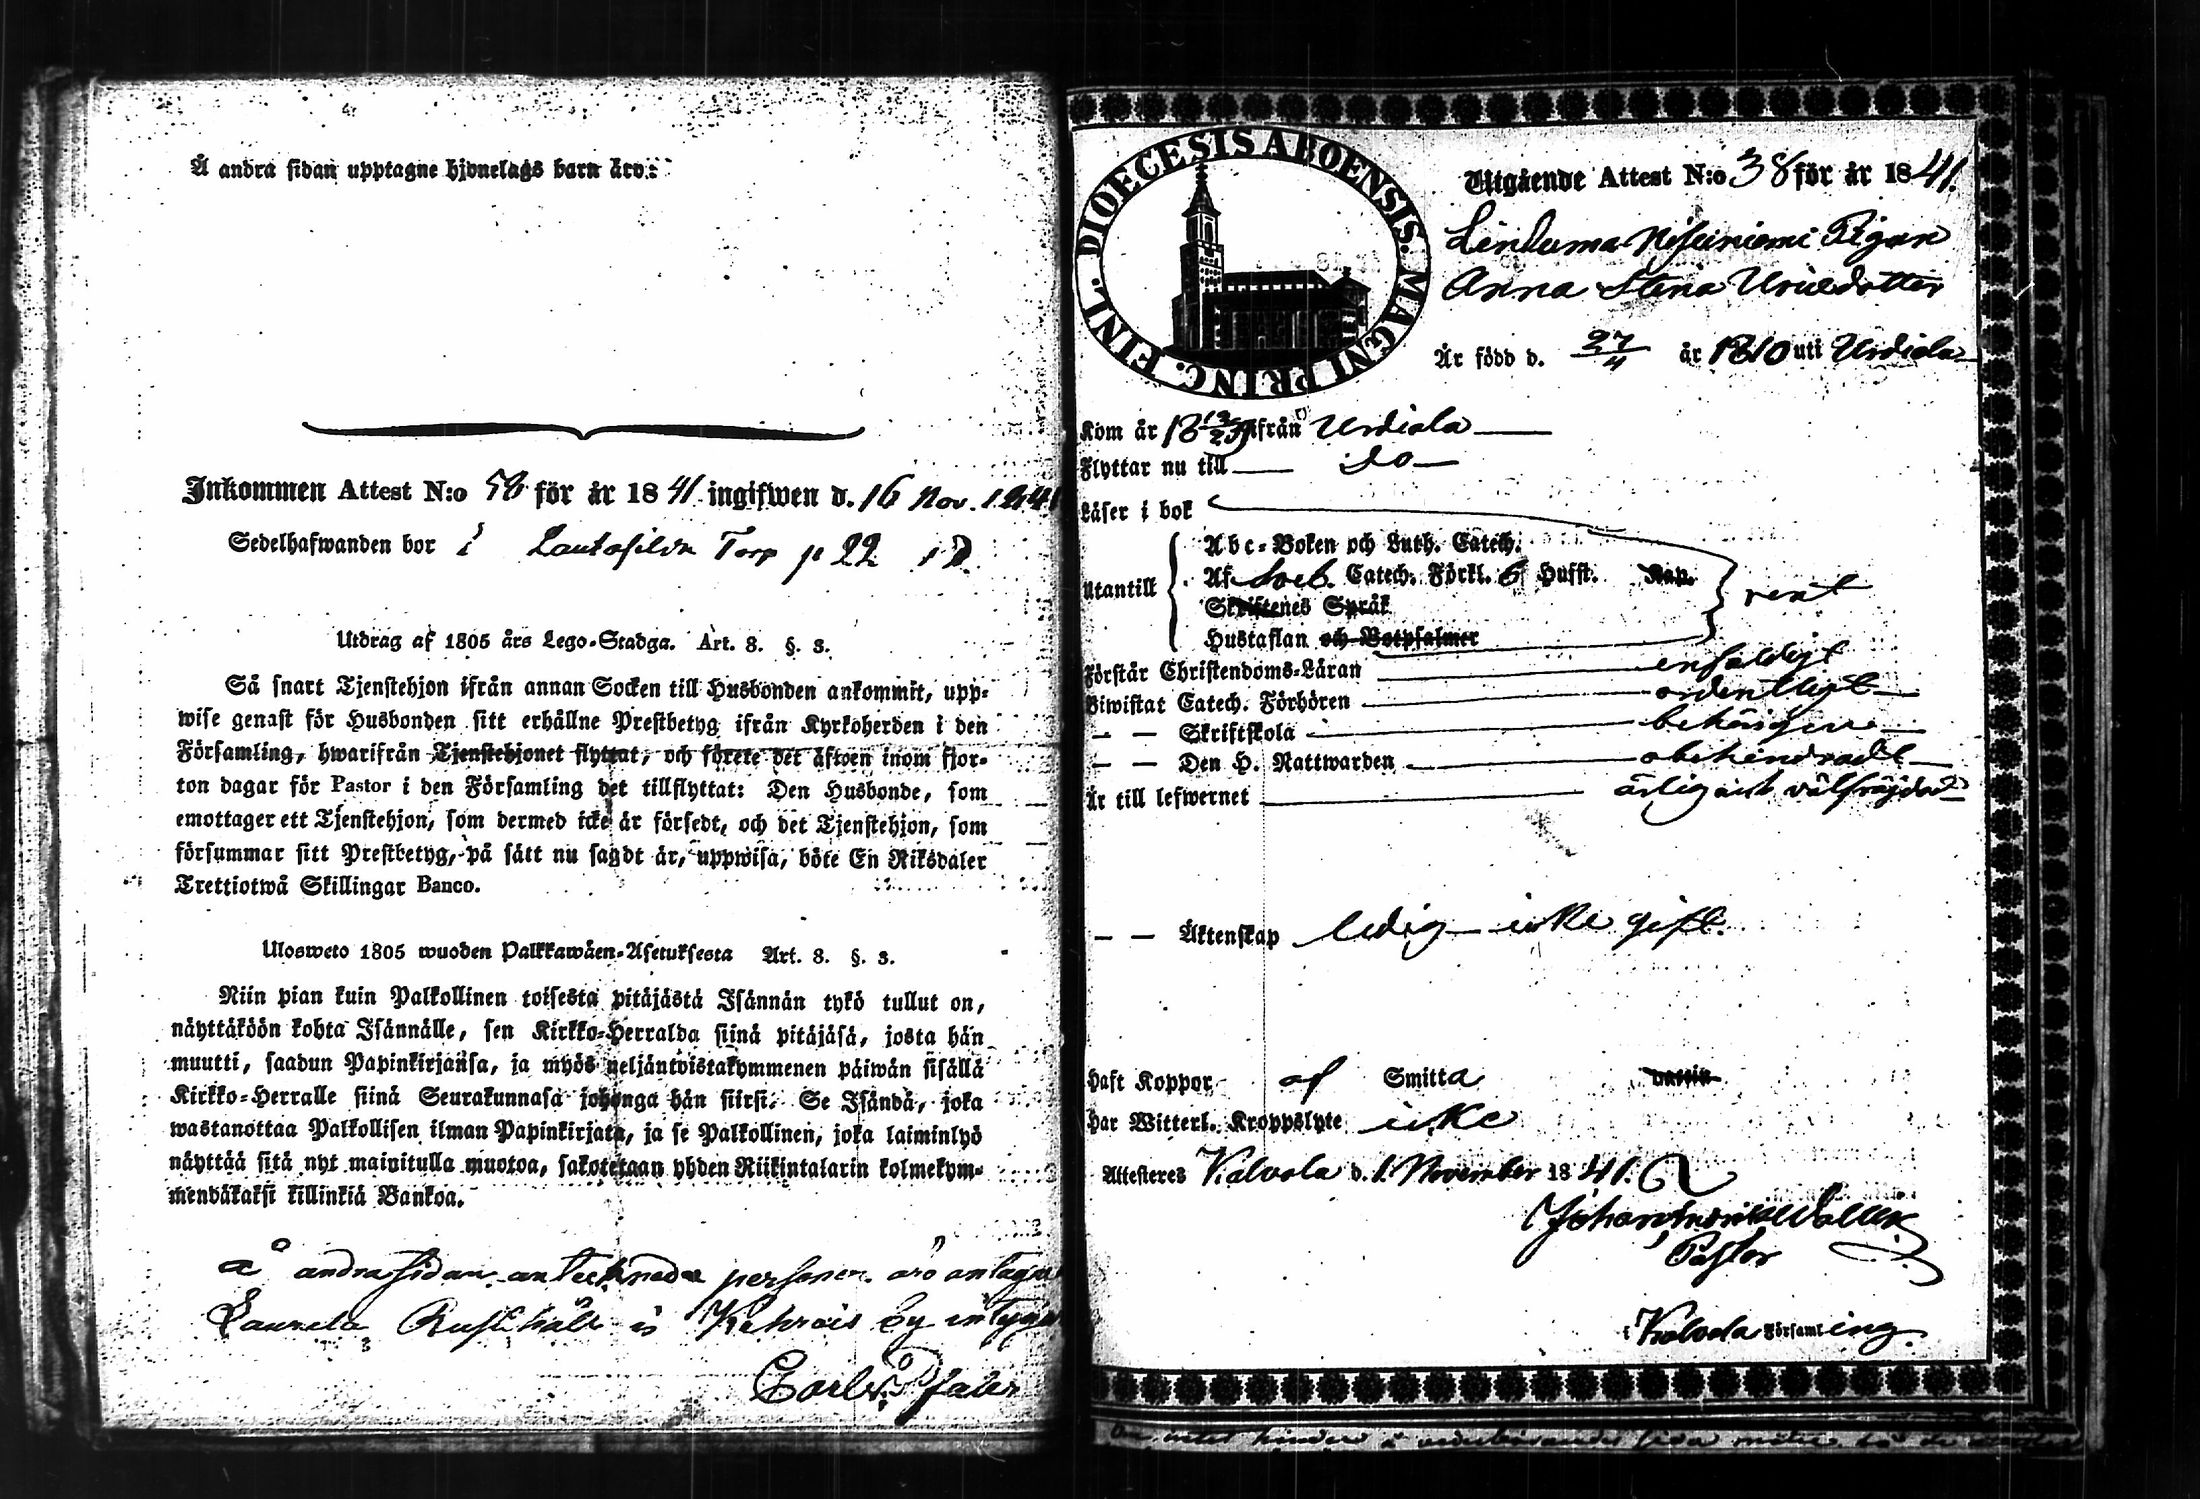 Å andra sidan upptagne hjonelags barn äro:
Inkommen Attest N:o 58 för år 1841 ingifwen d. 16 Nov. 1841
Sedelhafwanden bor i Torp p 22
Utdrag af 1805 års Lego-Stadga. Art. 8. §. 3.
Så snart Tjenstehjon ifrån annan Socken till Husbonden ankommit, upp-
wise genast för Husbonden sitt erhållne Prestbetyg ifrån Kyrkoherden i den
Församling, hwarifrån Tjenstehjonet flyttat, och förete det äfwen inom fjor-
ton dagar för Pastor i den Församling det tillflyttat: Den Husbonde, som
emottager ett Tjenstehjon, som dermed icke är försedt, och det Tjenstehjon, som
försummar sitt Prestbetyg, på sätt nu sagdt är, uppwisa, böte En Riksdaler
Trettiotwå Skillingar Banco.
Ulosweto 1805 wuoden Palkkawäen-Asetuksesta Art. 8. §. 3.
Niin pian kuin Palkollinen toisesta pitäjästä Isännän tykö tullut on,
näyttäköön kohta Isännälle, sen Kirkko-Herralda siinä pitäjäsä, josta hän
muutti, saadun Papinkirjansa, ja myös neljäntoistakymmenen päiwän sisällä
Kirkko-Herralle siinä Seurakunnasa johonga hän siirsi. Se Isändä, joka
wastanottaa Palkollisen ilman Papinkirjata, ja se Palkollinen, joka laiminlyö
näyttää sitä nyt mainitulla muotoa, sakotetaan yhden Riikintalarin kolmekym-
mendäkaksi killinkiä Bankoa.
å andra sidan antecknade personen äro antagen
Laurela Rusthåll i by intygar
Carl
DIOECESIS ABOENSIS. MAGNI PRINC. FINL.
Utgående Attest N:o 38 för år 1841.
Pigan
Anna Stina Urielsdotter
Är född d. 27/4 år 1810 uti Urdiala
Kom år 18 ifrån Urdiala
Flyttar nu till do
Läser i bok
Utantill
Abc-Boken och Luth. Catech.
Af Sveb. Catech. Förkl. 6 Hufst. Kap.
Skriftenes Språk
Hustaflan och Botpsalmer
rent
Förstår Christendoms-Läran enfaldigt
Biwistat Catech. Förhören ordentligt
— — Skriftskola behörigen
— — Den H. Nattwarden obehindradt
Är till lefwernet ärlig och välfräjdad
— — Äktenskap ledig icke gift.
Haft Koppor af Smitta vaccin
Har Witterl. Kroppslyte icke
Attesteras Kalvola d. 1. November 1841.
Johan
Pastor
i Kalvola Församling.